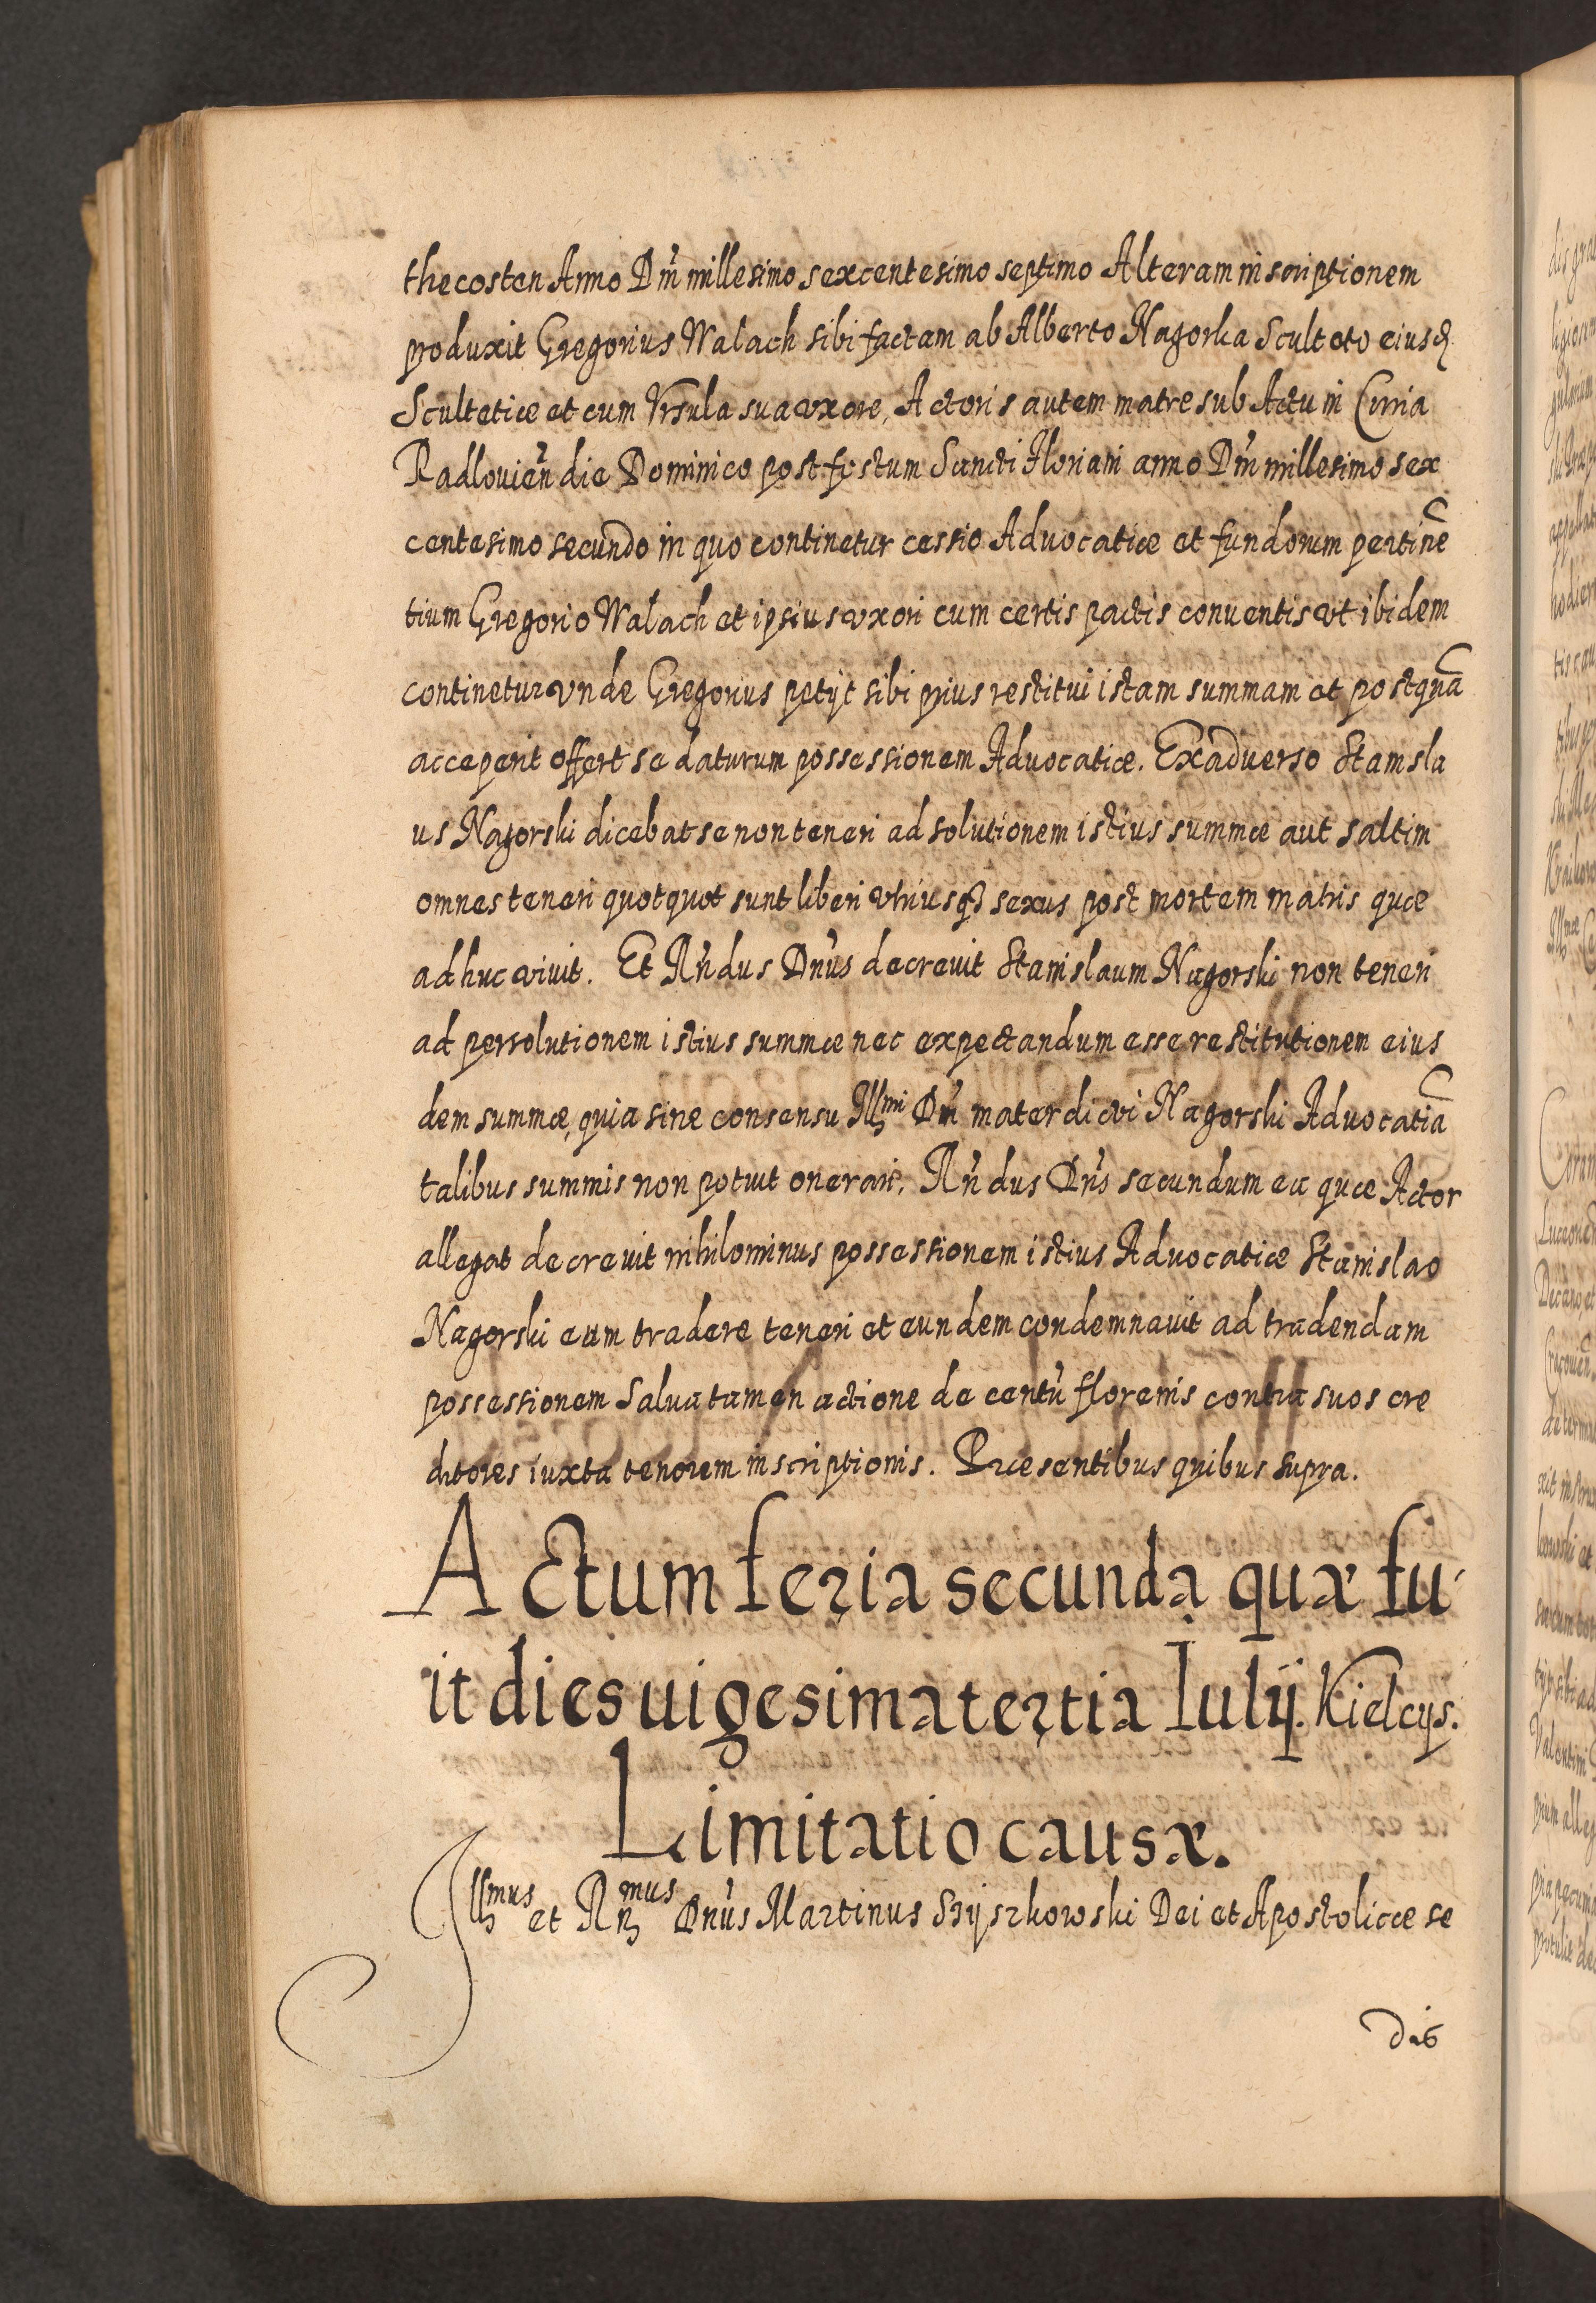 thecosten Anno Dm̃ millesimo sexcentesimo septimo Alteram inscriptionem
produxit Gregorius Walach sibi factam ab Alberto Nagorka Sculteto eiusd.
Scultetiæ et cum Vrsula sua vxore, Actoris autem matre sub Actu in Curia
Radlouieñ die Dominico post festum Sancti Floriani anno Dm̃ millesimo sex
centesimo secundo in quo continetur cessio Aduocatiæ et fundorum pertinē
tium Gregorio Walach et ipsius vxori cum certis pactis conuentis vt ibidem
continetur vnde Gregorius petÿt sibi prius restitui istam summam et postquā
acceperit offert se daturum possessionem Aduocatiæ. Exaduerso Stanisla
us Nagorski dicebat se non teneri ad solutionem istius summæ aut saltim
omnes teneri quotquot sunt liberi vtriusq3 sexus post mortem matris quæ
adhuc viuit. Et Rñdus Dñus decreuit Stanislaum Nagorski non teneri
ad persolutionem istius summæ nec expectandum esse restitutionem eius
dem summæ, quia sine consensu Illmi Dñi mater dicti Nagorski Aduocatiā
talibus summis non potuit onerari. Rñdus Dñs secundum ea quæ Actor
allegat decreuit nihilominus possessionem istius Aduocatiæ Stanislao
Nagorski eum tradere teneri et eundem condemnauit ad tradendam
possessionem Salua tamen actione de centũ florenis contra suos cre
ditores iuxta tenorem inscriptionis. Præsentibus quibus supra.
Actum feria secunda quæ fu
it dies uigesima tertia Iulij. Kielcys.
Limitatio causæ.
Illmus et Rmus Dñus Martinus Szyszkowski Dei et Apostolicæ se
dis